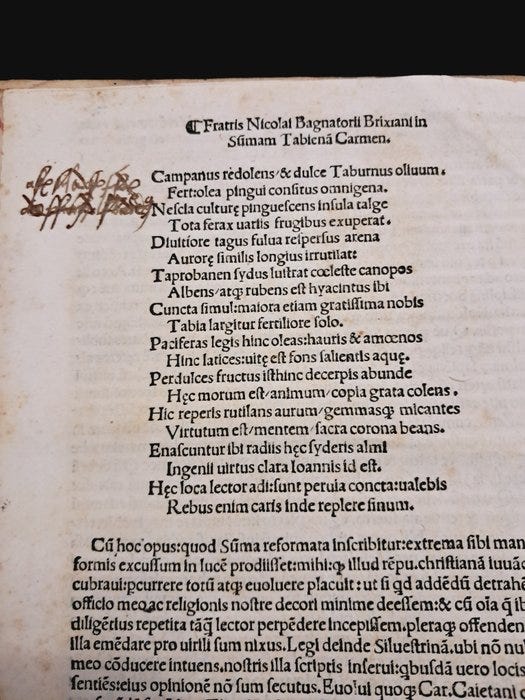 ❡Fratris Nicolai Bagnatorii Brixiani in
Sũmam Tabienã Carmen.
Campanus redolens/& dulce Taburnus oliuum.
Fertfolea pingui consitus omnigena.
Nescia culturę pinguescens insula talge
Tota ferax uariis frugibus exuperat.
Diuitiore tagus fulua respersus arena
Aurorę similis longius irrutilat:
Taprobanen sydus lustrat cœleste canopos
Albens/atq; rubens est hyacintus ibi
Cuncta simul:maiora etiam gratissima nobis
Tabia largitur fertiliore solo.
Paciferas legis hinc oleas:hauris & amœnos
Hinc latices:uitę est fons salientis aquę.
Perdulces fructus isthinc decerpis abunde
Hęc morum est/animum/copia grata colens.
Hic reperis rutilans aurum/gemmasq; micantes
Virtutum est/mentem/sacra corona beans.
Enascuntur ibi radiis hęc syderis almi
Ingenii uirtus clara Ioannis id est.
Hęc loca lector adi:sunt peruia concta:ualebis
Rebus enim caris inde replere sinum.
Cũ hoc opus:quod Sũma reformata inscribitur:extrema sibi man
formis excussum in lucẽ prodiisset:mihi:q; illud rẽpu.christianã iuuã
cubraui:pcurrere totũ atq; euoluere placuit:ut si qd addẽdũ detrahẽ
officio meo ac religionis nostre decori minime deessem:& cũ oĩa q̃ ib
diligẽtius repetita tãq̃ lector perpẽdere incepissem.pleraq; offenden
illa emẽdare pro uirili sum nixus.Legi deinde Siluestrinã.ubi nõ nul
meo cõducere intuens.nostris illa scriptis inserui:q̃busdã uero locis
sentiẽs:eius opinionẽ nõ sum secutus.Euolui quoq; Car.Caietani